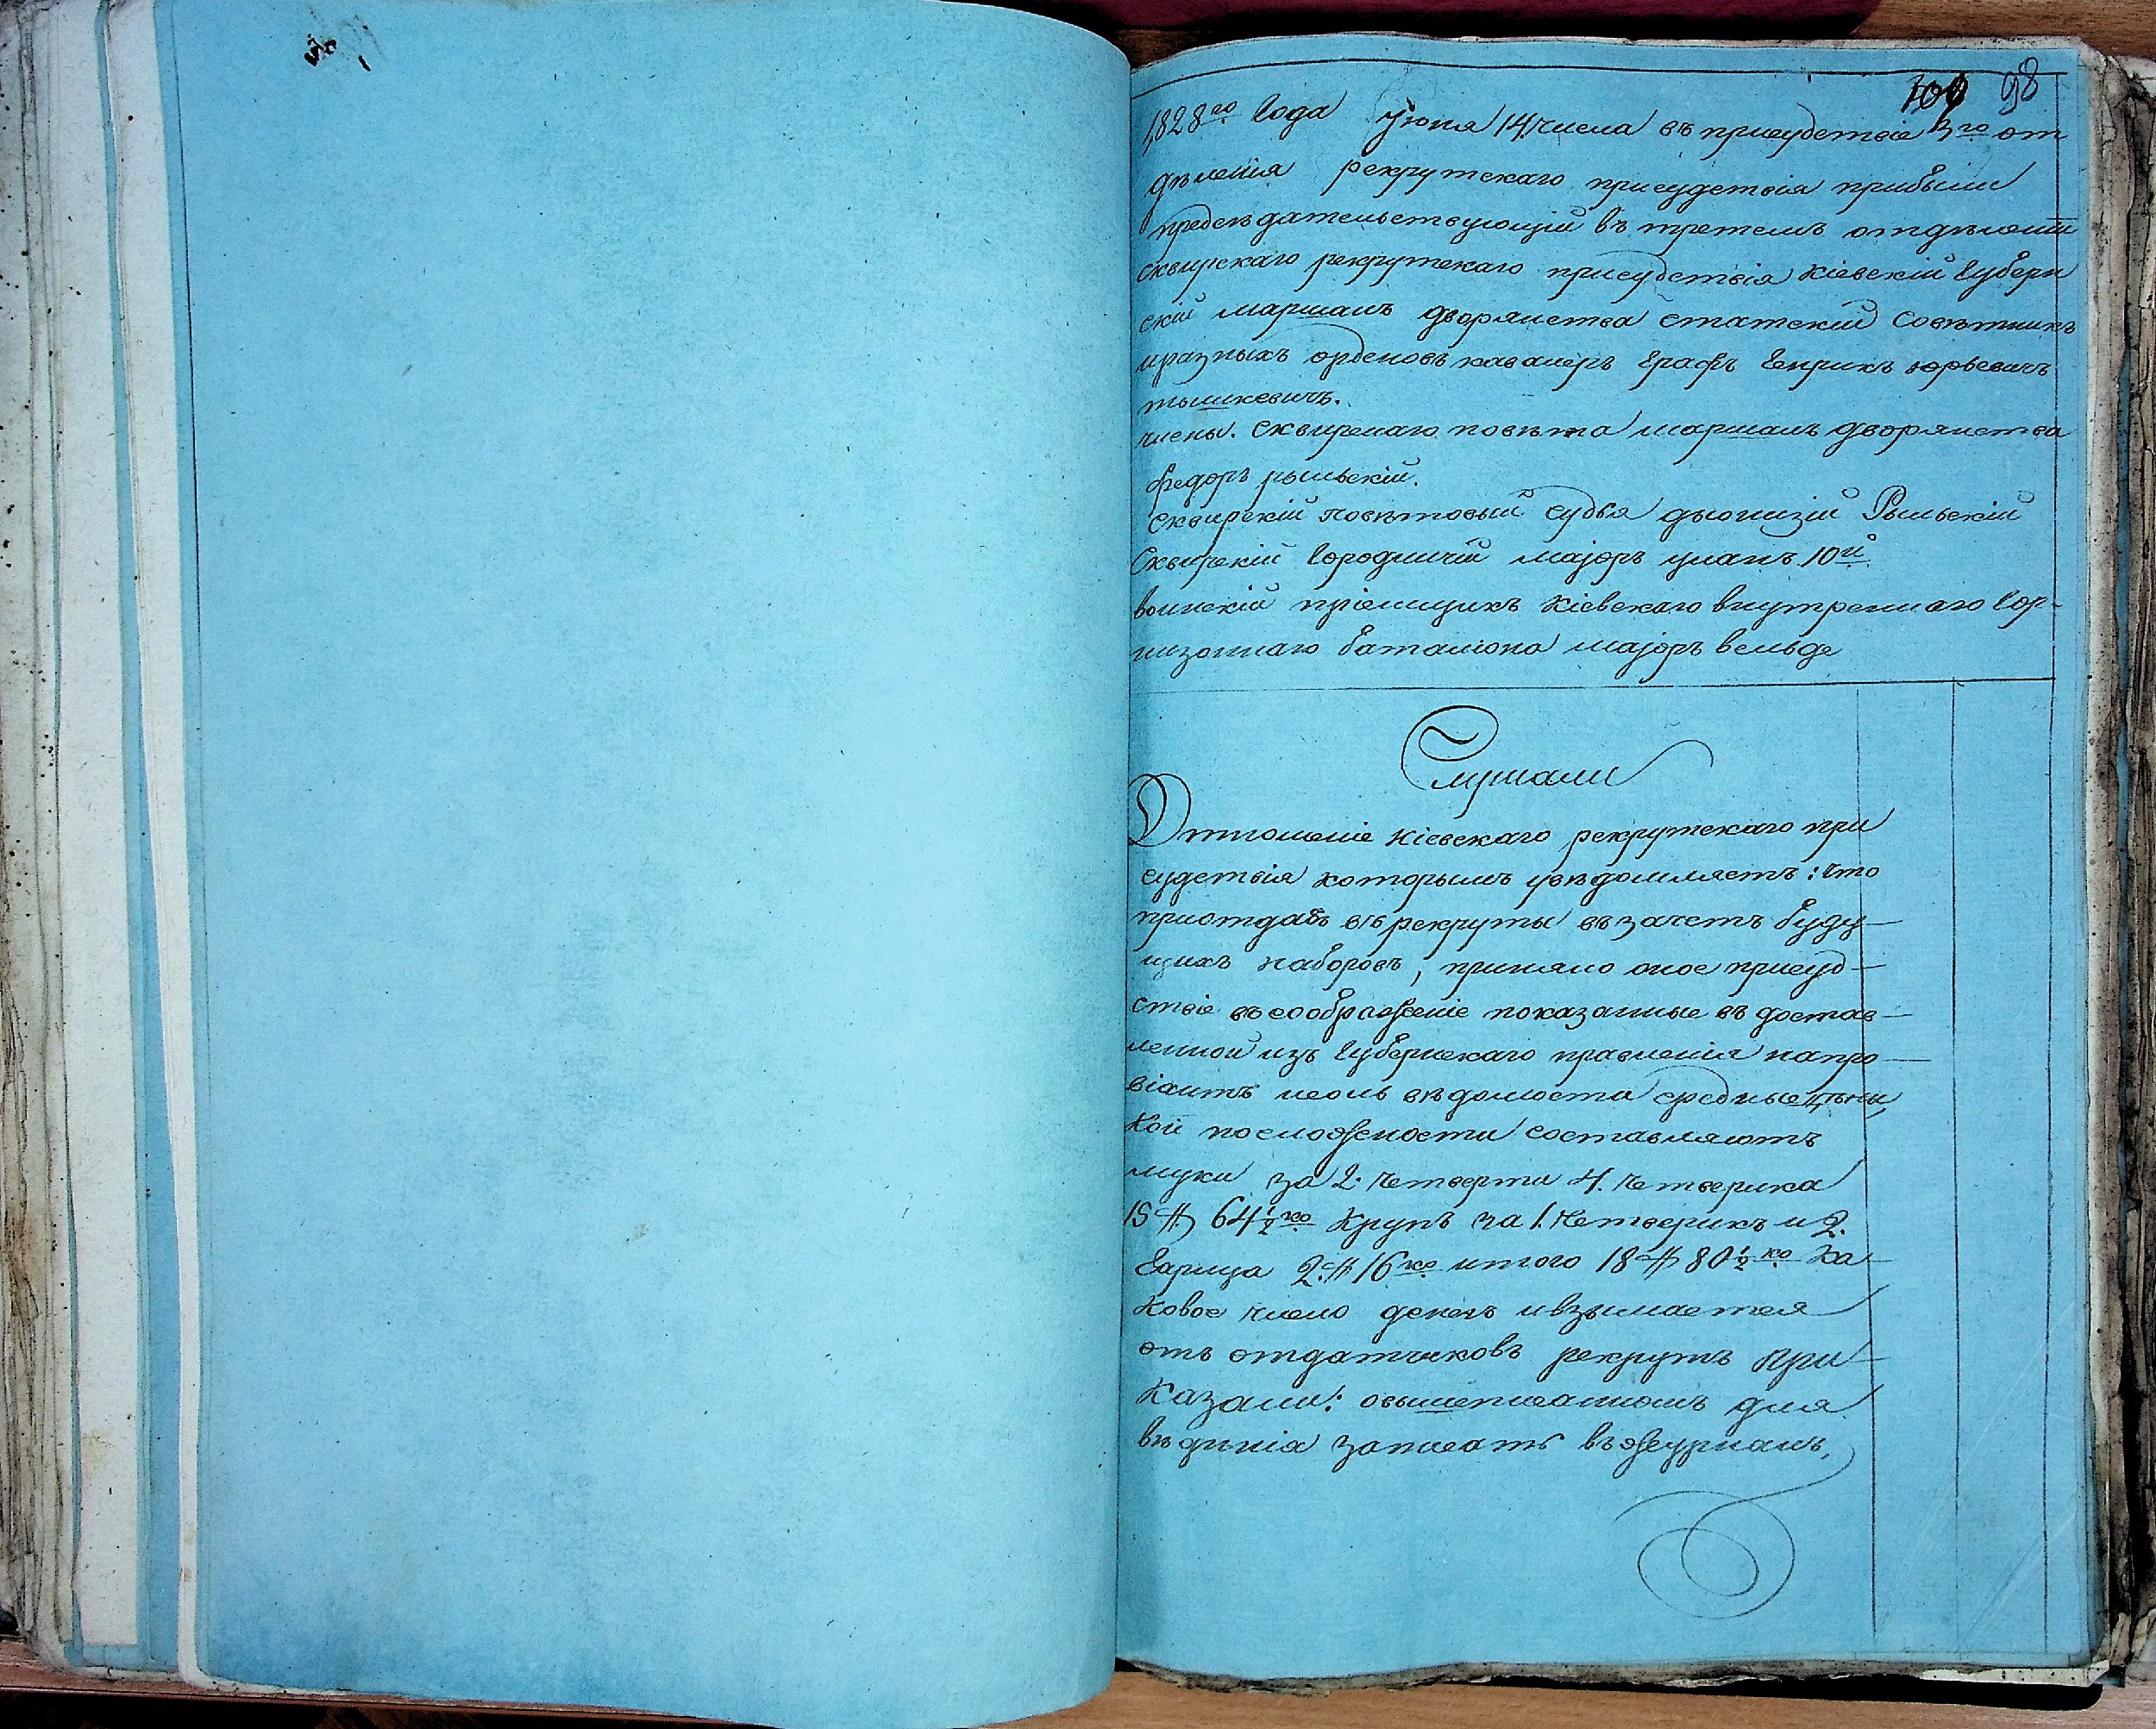 98
1828го Года Июня 14. числа въ присудствіе 3го от
дѣленія рекрутскаго присудствія прибыли
предсѣдательствующій въ третемъ отдѣленіи
сквирскаго рекрутскаго присудствія Кіевскій Губерн
скій маршалъ дворянства статскій Совѣтникъ
и разныхъ орденовъ кавалеръ Графъ Генрикъ юрьевичъ
тышкевичъ.
члены. Сквирскаго повѣта маршалъ дворянства
Федоръ рыльскій.
Сквирскій повѣтовый судья дионизій Рыльскій
Сквирскій Городничій маіоръ уланъ 10й
воинскій пріемщикъ Кіевскаго внутренняго Гор-
низоннаго баталіона маіоръ вельде
Слушали
Отношеніе Кіевскаго рекрутскаго при
судствія которымъ увѣдомляетъ: что
приотдачѣ въ рекруты въ зачетъ буду-
щихъ наборовъ, приняло оное присуд-
ствіе въ соображеніе показанные въ достав-
ленной изъ Губернскаго правленія на про-
віантъ іюль вѣдомости средные цѣны,
кои посложности составляютъ
муки за 2. четверти 4. четверика
16 64½ ко Крупъ за 1. четверикъ и 2.
Гарнца 2. 16 ко итого 18 80½ ко ка-
ковое число денегъ и взымается
отъ отдатчиковъ рекрутъ При-
казали: овышеписанномъ для
вѣдѣнія записать въ журналъ,